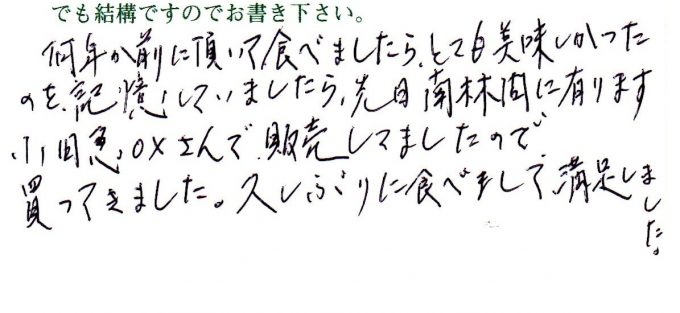 でも結構ですのでお書き下さい。
何年か前に頂いて食べましたら、とても美味しかった
のを、記憶していましたら、先日南林間に有ります
小田急OXさんで、販売してましたので
買ってきました。久しぶりに食べまして、満足しました。